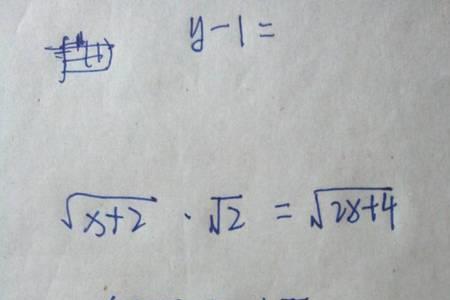 y-1=
√(x+2) · √2 = √(2x+4)